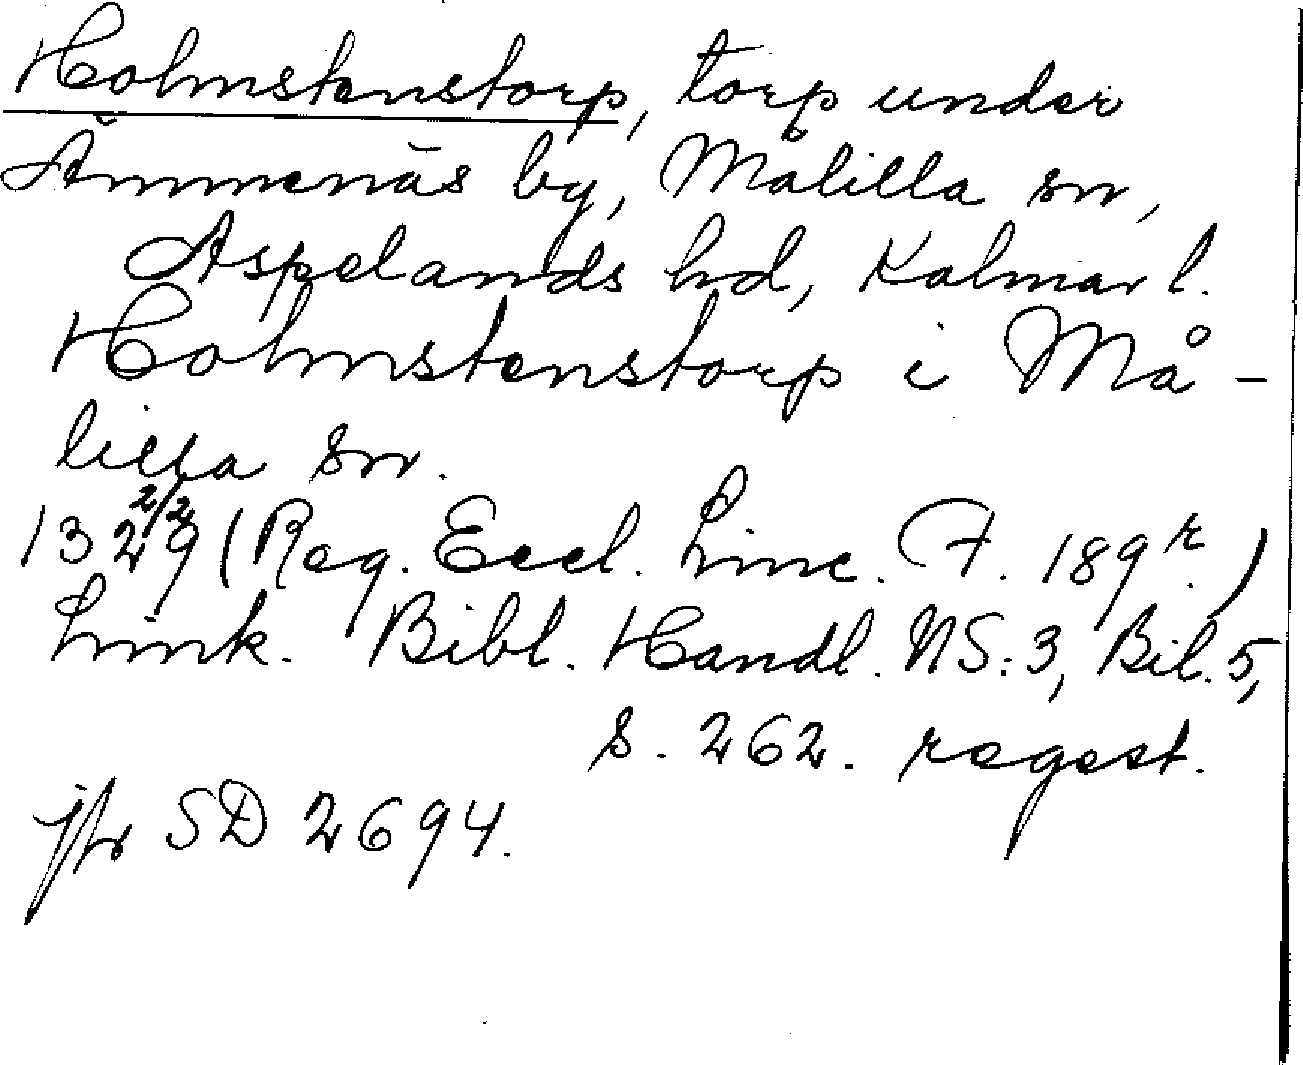 Holmstenstorp, torp under
Ämmenäs by, Målilla sn,
Aspelands hd, Kalmar l.
Holmstenstorp i Må-
lilla sn.
1329 2/2 (Reg. Eccl. Linc. F. 189 r.)
Link. Bibl. Handl. NS: 3, Bil. 5,
s. 262. regest.
jfr SD 2694.